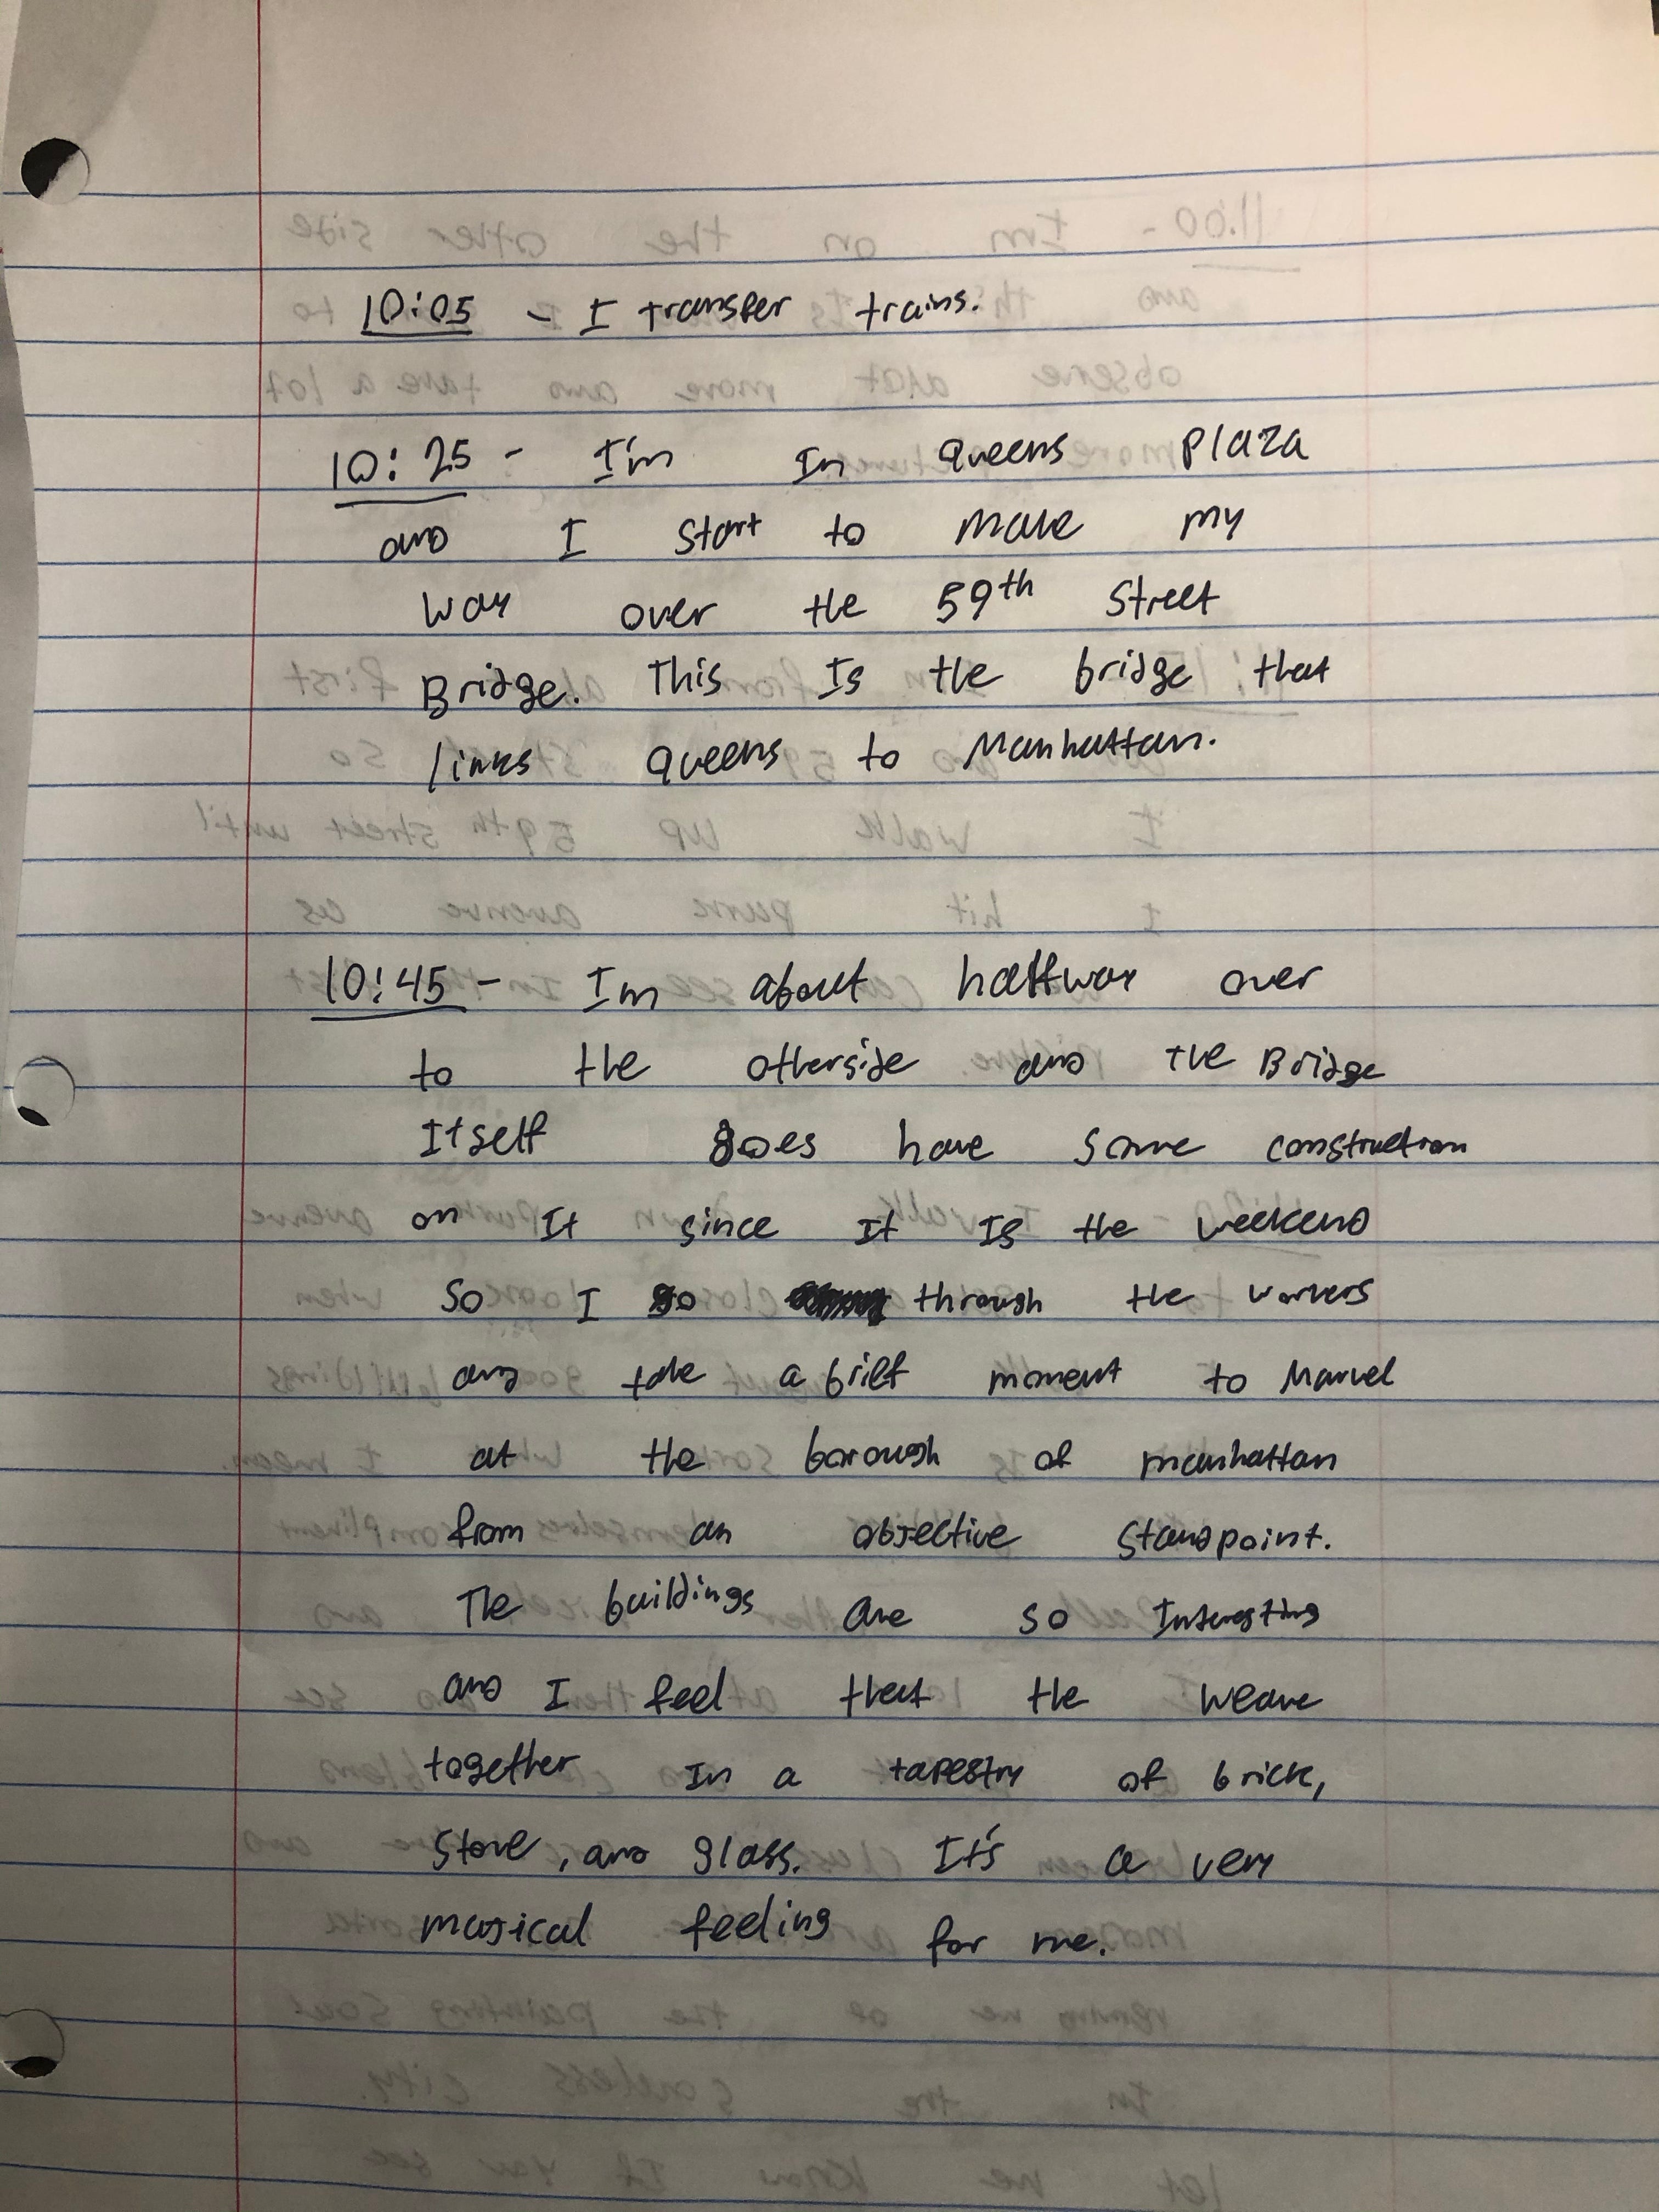 10:05 - I transfer trains.
10:25 - I'm In Queens Plaza
and I start to make my
way over the 59th Street
Bridge. This Is the bridge that
links Queens to Manhattan.
10:45 - Im about halfway over
to the otherside and the Bridge
Itself does have some construction
on It since It Is the weekend
so I go through the workers
and take a brief moment to Marvel
at the borough of manhattan
from an objective standpoint.
The buildings are so Interesting
and I feel that the weave
together In a tapestry of brick,
stone, and glass. It's a very
magical feeling for me.